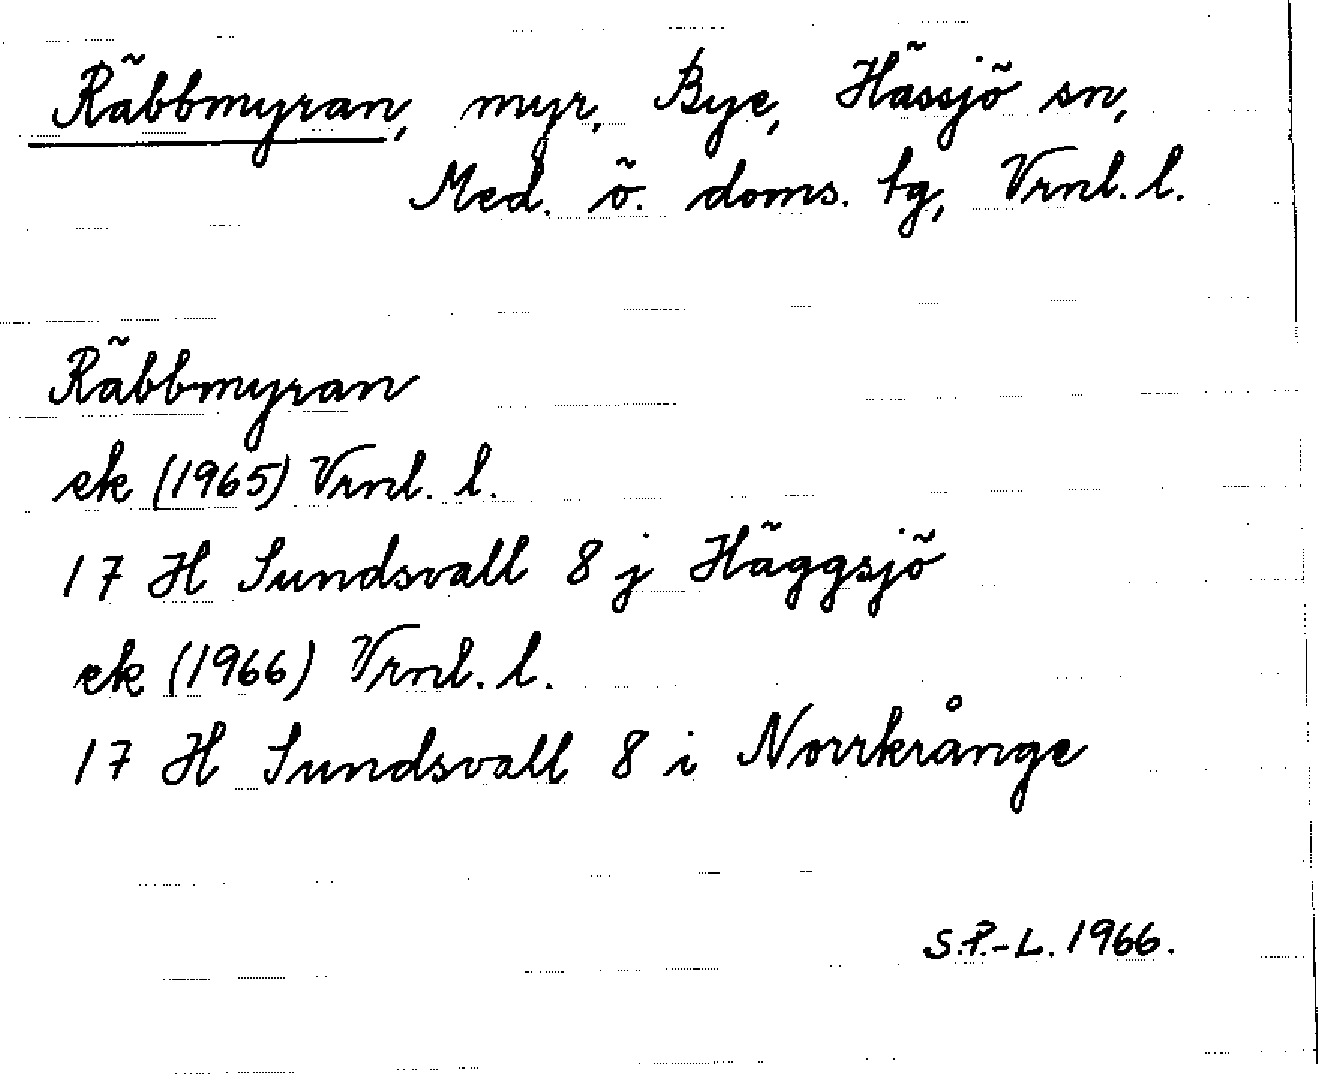 Räbbmyran, myr, Bye, Hässjö sn,
Med. ö. doms. tg, Vrnl. l.
Räbbmyran
ek (1965) Vrnl. l.
17 H Sundsvall 8 j Häggsjö
ek (1966) Vrnl. l.
17 H Sundsvall 8 i Norrkrånge
S.P.-L. 1966.